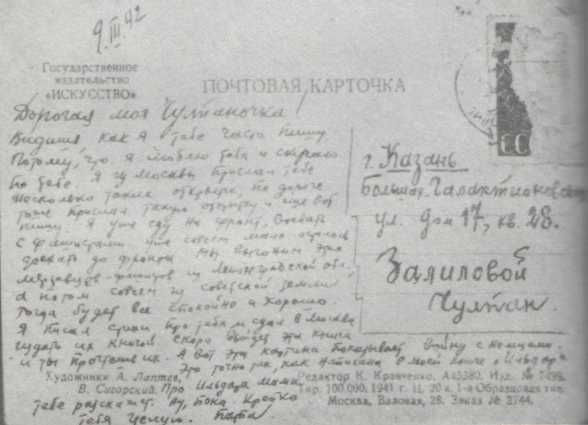 9.III.42
Государственное
издательство
«ИСКУССТВО»
ПОЧТОВАЯ КАРТОЧКА
Дорогая моя Чулпаночка
Видишь как я тебе часто пишу
Потому, что я люблю тебя и скучаю
по тебе. Я из Москвы прислал тебе
несколько таких открыток, по дороге
тоже прислал такую открытку и еще вот
пишу. Я уже еду на фронт, воевать
с фашистами уже совсем мало осталось
доехать до фронта мы выгоним этих
мерзавцев-фашистов из Ленинградской обл.,
а потом совсем из советской земли
тогда будет все спокойно и хорошо
Я писал стихи про тебя и сдал в Москве
издать их книгой Скоро выйдет эта книга
и ты прочтешь их. А вот эта картина показывает войну с немцами.
Это точно так, как написано в моей книге «Ильдар»
Про Ильдара мама
тебе расскажет. Ну, пока. Крепко
тебя целую. Папа.
ЕС
г. Казань
Большая Галактионовская
ул. дом 17, кв. 28.
Залиловой
Чулпан.
Художники А. Лаптев,
В. Сигорский.
Редактор К. Кравченко. А45380. Изд. №
Тир. 100.000. 1941 г. Ц. 20 к. 1-я Образцовая тип.
Москва, Валовая, 28. Заказ № 2744.